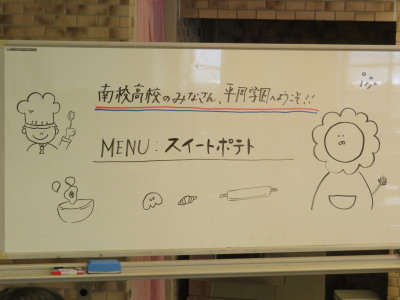 南校高校のみなさん、平岡学園へようこそ!!
MENU: スイートポテト